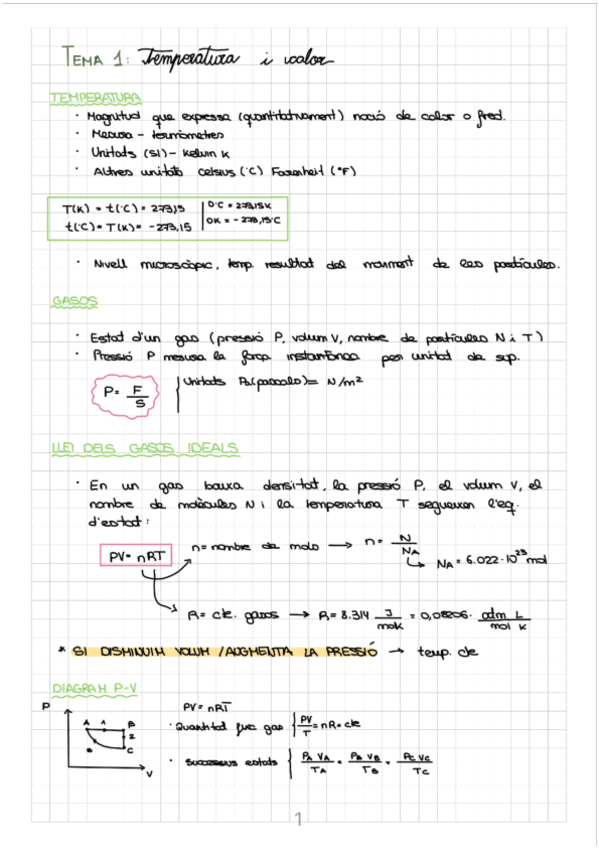 TEMA 1: Temperatura i calor
TEMPERATURA
· Magnitud que expressa (quantitativament) noció de calor o fred.
· Mesura - termòmetres
· Unitats (SI) - Kelvin K
· Altres unitats Celsius (°C) Farenheit (°F)
T(K) = t(°C) = 273,15 | 0°C = 273,15K
t(°C) = T(K) = -273,15 | 0K = -273,15°C
· Nivell microscòpic, temp. resultat del moviment de les partícules.
GASOS
· Estat d'un gas (pressió P, volum V, nombre de partícules N i T)
· Pressió P mesura la força instantània per unitat de sup.
P = F/S { Unitats Pa (pascals) = N/m²
LLEI DELS GASOS IDEALS
· En un gas baixa densitat, la pressió P, el volum V, el
nombre de molècules N i la temperatura T segueixen l'eq.
d'estat:
PV = nRT
n = nombre de mols → n = N/NA
↳ NA = 6.022·10²³ mol
R = cte. gasos → R = 8.314 J/molK = 0,08206 · atm L/mol K
* SI DISMINUIM VOLUM / AUGMENTA LA PRESSIÓ → temp. de
DIAGRAM P-V
P
A 1 B
2
C
V
PV = nRT
· Quantitat fixa gas { PV/T = nR = cte
· Successius estats { PA VA/TA = PB VB/TB = PC VC/TC
1